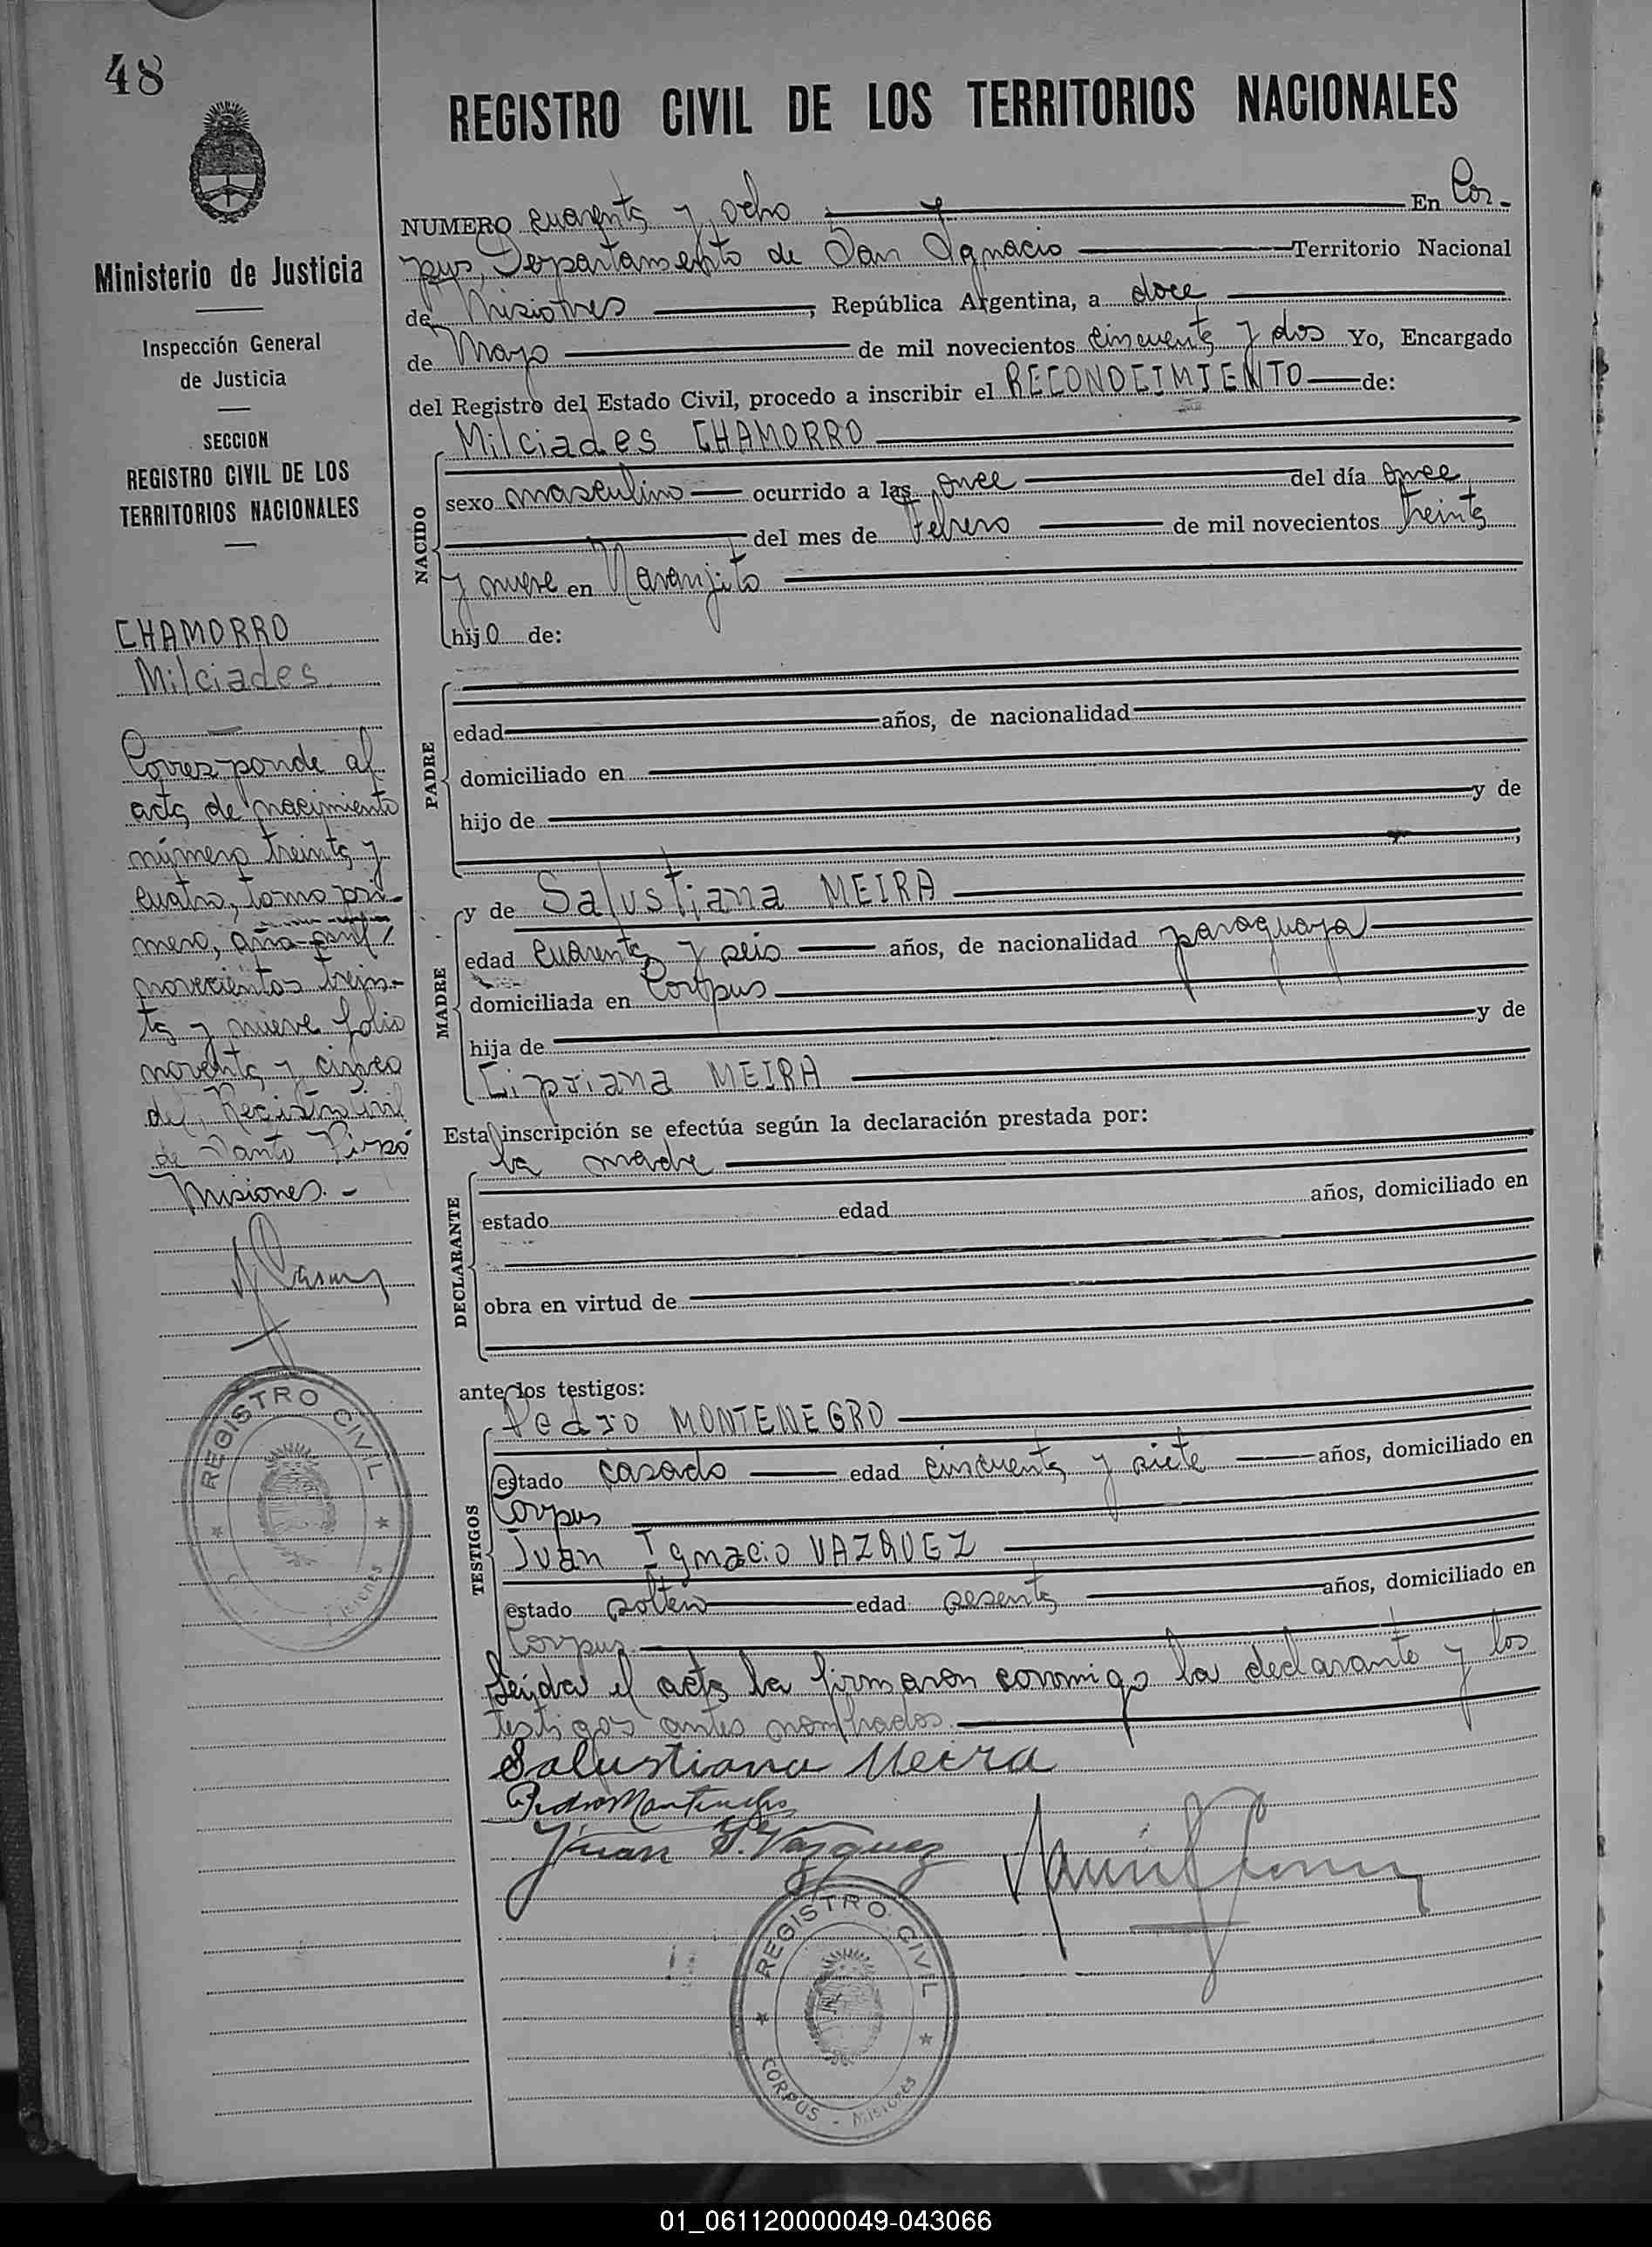 48
REGISTRO CIVIL DE LOS TERRITORIOS NACIONALES
Ministerio de Justicia
Inspección General
de Justicia
SECCION
REGISTRO CIVIL DE LOS
TERRITORIOS NACIONALES
CHAMORRO
Milciades
Corresponde al
acta de nacimiento
número treinta y
cuatro, tomo pri-
mero, año mil
novecientos trein-
ta y nueve folio
noventa y cinco
del Registro Civil
de Santo Pipó
Misiones.-
REGISTRO CIVIL
NUMERO cuarenta y ocho En Cor-
pus, Departamento de San Ignacio Territorio Nacional
de Misiones, República Argentina, a doce
de Mayo de mil novecientos cincuenta y dos Yo, Encargado
del Registro del Estado Civil, procedo a inscribir el RECONOCIMIENTO de:
NACIDO
Milciades CHAMORRO
sexo masculino ocurrido a las once del día once
del mes de Febrero de mil novecientos treinta
y nueve en Naranjito
hijo de:
PADRE
edad años, de nacionalidad
domiciliado en
hijo de y de
;
MADRE
y de Salustiana MEIRA
edad cuarenta y seis años, de nacionalidad paraguaya
domiciliada en Corpus
hija de y de
Cipriana MEIRA
Esta inscripción se efectúa según la declaración prestada por:
DECLARANTE
la madre
estado edad años, domiciliado en
obra en virtud de
ante los testigos:
TESTIGOS
Pedro MONTENEGRO
estado casado edad cincuenta y siete años, domiciliado en
Corpus
Juan Ignacio VAZQUEZ
estado soltero edad sesenta años, domiciliado en
Corpus
Leída el acta la firmaron conmigo la declarante y los
testigos antes nombrados.
Salustiana Meira
Pedro Montenegro
Juan I. Vazquez
REGISTRO CIVIL
CORPUS - MISIONES
01_061120000049-043066